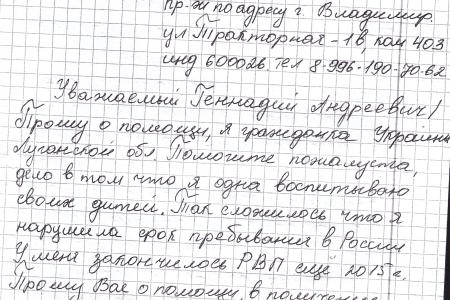 пр-ж по адресу г. Владимир.
ул Тракторная - 1в, ком 403
инд 600026. тел 8-996-190-70-62
Уважаемый Геннадий Андреевич!
Прошу о помощи, я гражданка Украины
Луганской обл. Помогите пожалуста,
дело в том что я одна воспитываю
своих дитей. Так сложилось что я
нарушила срок пребывания в России
У меня закончилось РВП ещё 2015 г.
Прошу Вас о помощи, в